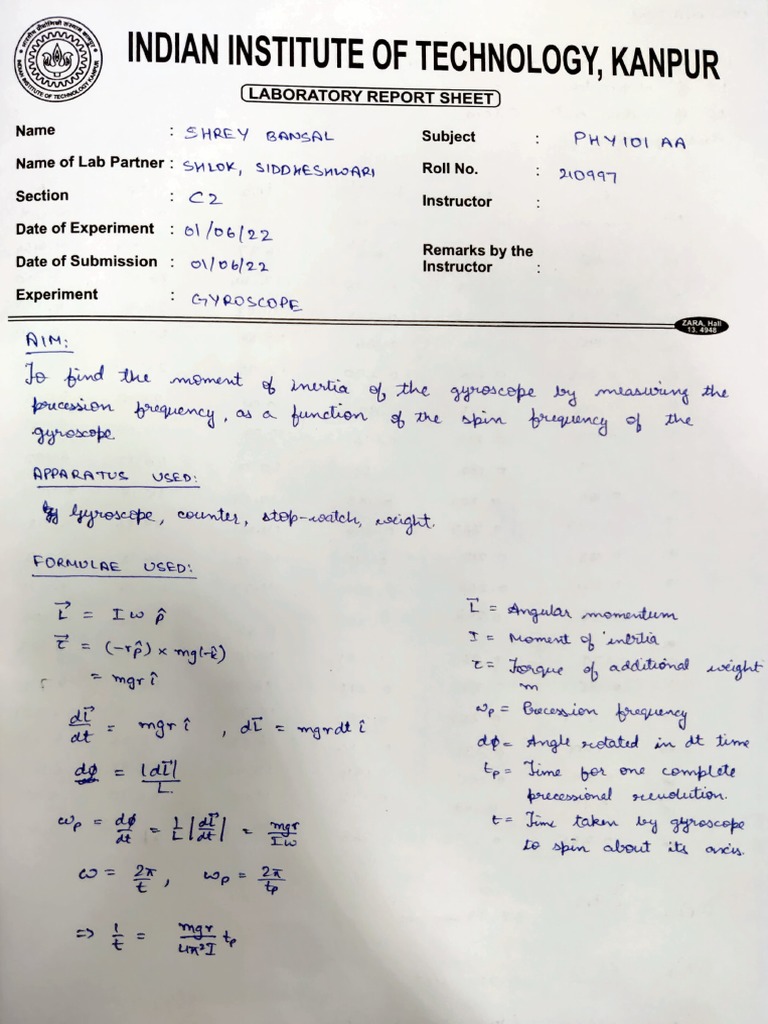 INDIAN INSTITUTE OF TECHNOLOGY, KANPUR
LABORATORY REPORT SHEET
Name : SHREY BANSAL
Subject : PHY101 AA
Name of Lab Partner : SHLOK, SIDDHESHWARI
Roll No. : 210997
Section : C2
Instructor :
Date of Experiment : 01/06/22
Date of Submission : 01/06/22
Remarks by the
Instructor :
Experiment : GYROSCOPE
ZARA, Hall
13. 4948
AIM:
To find the moment of inertia of the gyroscope by measuring the
precession frequency, as a function of the spin frequency of the
gyroscope.
APPARATUS USED:
Gyroscope, counter, stop-watch, weight.
FORMULAE USED:
L⃗ = Iω p̂
τ⃗ = (-rp̂) × mg(-k̂)
= mgr î
dL⃗/dt = mgr î , dL⃗ = mgrdt î
dϕ = |dL⃗|/L
ωp = dϕ/dt = 1/L |dL⃗/dt| = mgr/Iω
ω = 2π/t , ωp = 2π/tp
=> 1/t = mgr/4π²I tp
L⃗ = Angular momentum
I = Moment of inertia
τ = Torque of additional weight
m
ωp = Precession frequency
dϕ = Angle rotated in dt time
tp = Time for one complete
precessional revolution.
t = Time taken by gyroscope
to spin about its axis.